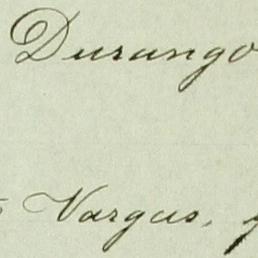 Durango
Vargas,